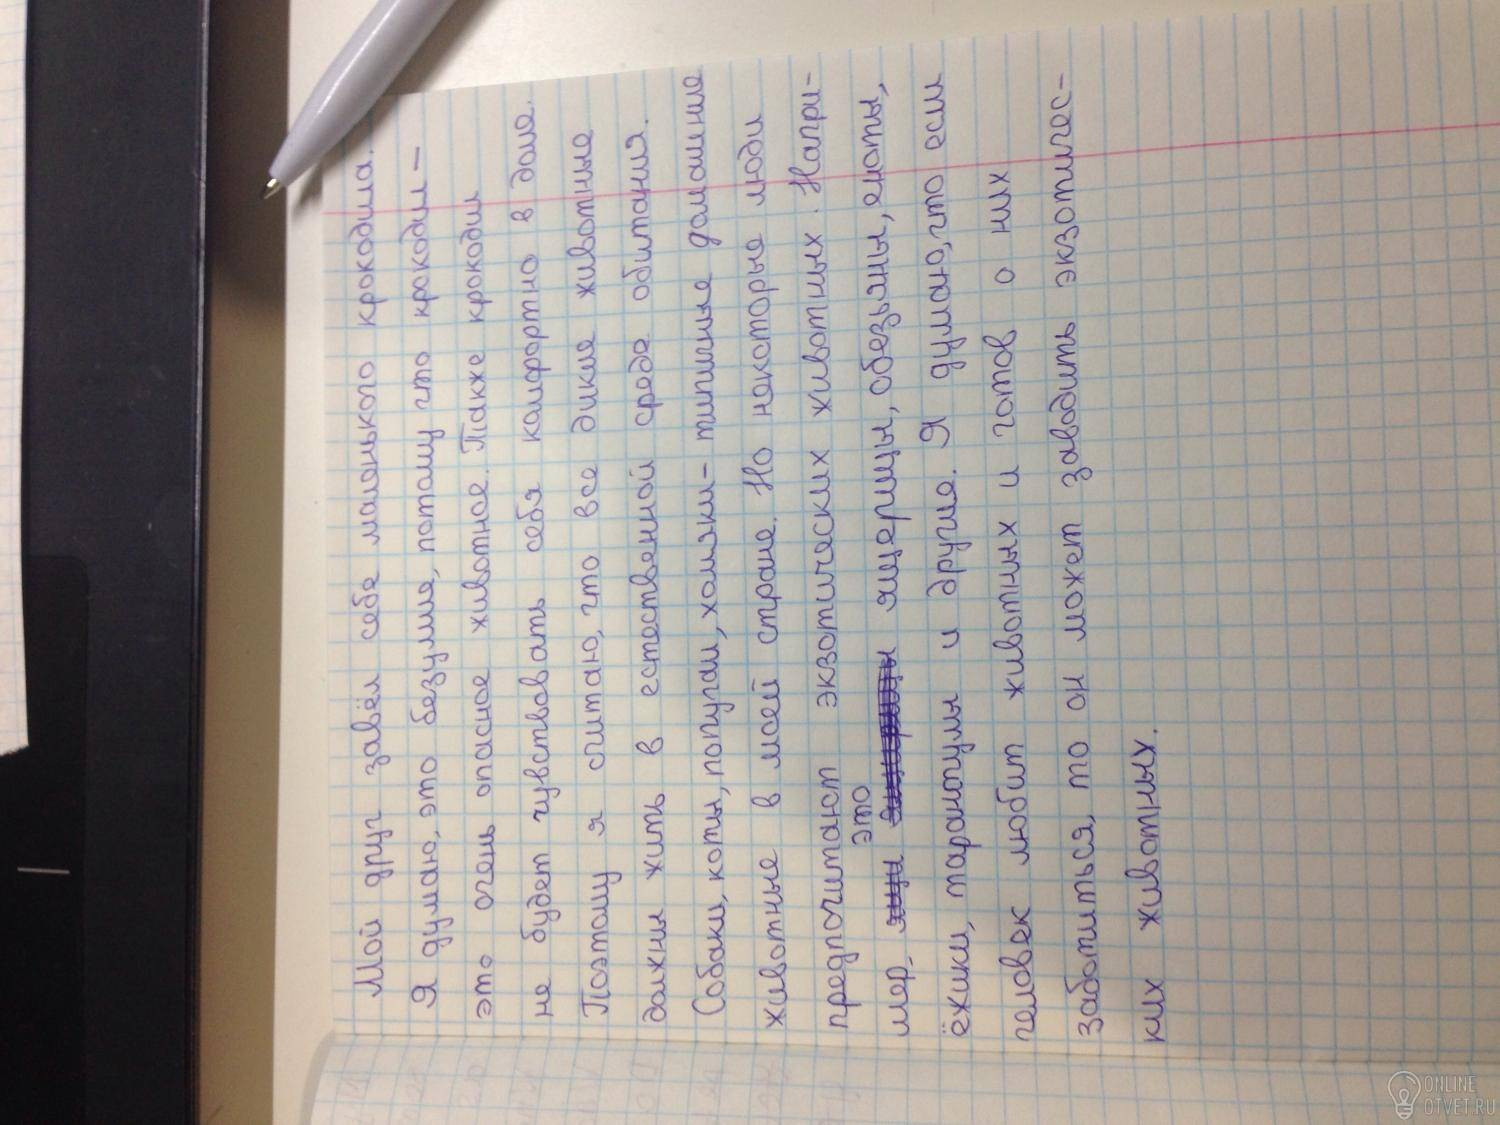 Мой друг завёл себе маленького крокодила.
Я думаю, это безумие, потому что крокодил -
это очень опасное животное. Также крокодил
не будет чувствовать себя комфортно в доме.
Поэтому я считаю, что все дикие животные
должны жить в естественной среде обитания.
Собаки, коты, попугаи, хомяки - типичные домашние
животные в моей стране. Но некоторые люди
предпочитают экзотических животных. Напри-
это
мер_ ящерицы, обезьяны, еноты,
ёжики, тарантулы и другие. Я думаю, что если
человек любит животных и готов о них
заботиться, то он может заводить экзотичес-
ких животных.
ONLINE
OTVET.RU